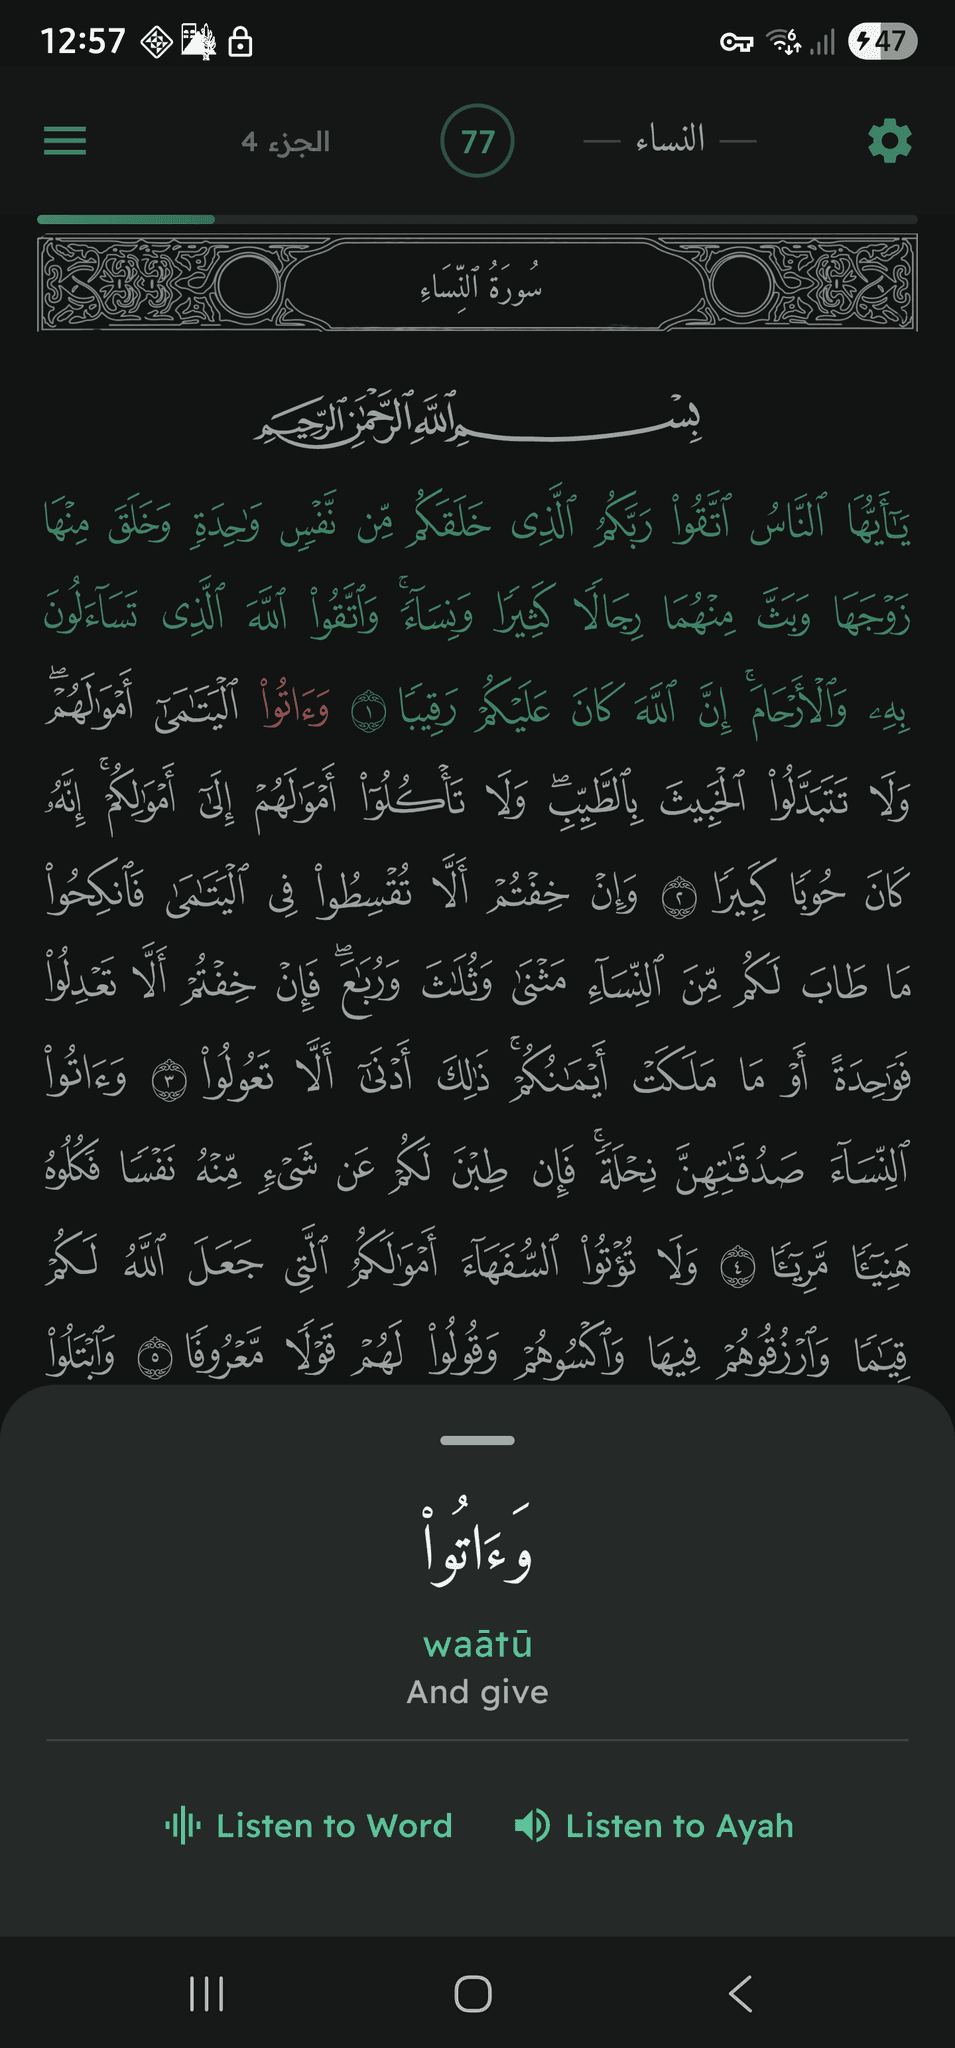 12:57
6
47
النساء
77
الجزء 4
سُورَةُ ٱلنِّسَاءِ
بِسْمِ ٱللَّهِ ٱلرَّحْمَٰنِ ٱلرَّحِيمِ
يَٰٓأَيُّهَا ٱلنَّاسُ ٱتَّقُوا۟ رَبَّكُمُ ٱلَّذِى خَلَقَكُم مِّن نَّفْسٍ وَٰحِدَةٍ وَخَلَقَ مِنْهَا
زَوْجَهَا وَبَثَّ مِنْهُمَا رِجَالًا كَثِيرًا وَنِسَآءً ۚ وَٱتَّقُوا۟ ٱللَّهَ ٱلَّذِى تَسَآءَلُونَ
بِهِۦ وَٱلْأَرْحَامَ ۚ إِنَّ ٱللَّهَ كَانَ عَلَيْكُمْ رَقِيبًا ١ وَءَاتُوا۟ ٱلْيَتَٰمَىٰٓ أَمْوَٰلَهُمْ ۖ
وَلَا تَتَبَدَّلُوا۟ ٱلْخَبِيثَ بِٱلطَّيِّبِ ۖ وَلَا تَأْكُلُوٓا۟ أَمْوَٰلَهُمْ إِلَىٰٓ أَمْوَٰلِكُمْ ۚ إِنَّهُۥ
كَانَ حُوبًا كَبِيرًا ٢ وَإِنْ خِفْتُمْ أَلَّا تُقْسِطُوا۟ فِى ٱلْيَتَٰمَىٰ فَٱنكِحُوا۟
مَا طَابَ لَكُم مِّنَ ٱلنِّسَآءِ مَثْنَىٰ وَثُلَٰثَ وَرُبَٰعَ ۖ فَإِنْ خِفْتُمْ أَلَّا تَعْدِلُوا۟
فَوَٰحِدَةً أَوْ مَا مَلَكَتْ أَيْمَٰنُكُمْ ۚ ذَٰلِكَ أَدْنَىٰٓ أَلَّا تَعُولُوا۟ ٣ وَءَاتُوا۟
ٱلنِّسَآءَ صَدُقَٰتِهِنَّ نِحْلَةً ۚ فَإِن طِبْنَ لَكُمْ عَن شَىْءٍ مِّنْهُ نَفْسًا فَكُلُوهُ
هَنِيٓـًٔا مَّرِيٓـًٔا ٤ وَلَا تُؤْتُوا۟ ٱلسُّفَهَآءَ أَمْوَٰلَكُمُ ٱلَّتِى جَعَلَ ٱللَّهُ لَكُمْ
قِيَٰمًا وَٱرْزُقُوهُمْ فِيهَا وَٱكْسُوهُمْ وَقُولُوا۟ لَهُمْ قَوْلًا مَّعْرُوفًا ٥ وَٱبْتَلُوا۟
وَءَاتُوا۟
waātū
And give
Listen to Word
Listen to Ayah